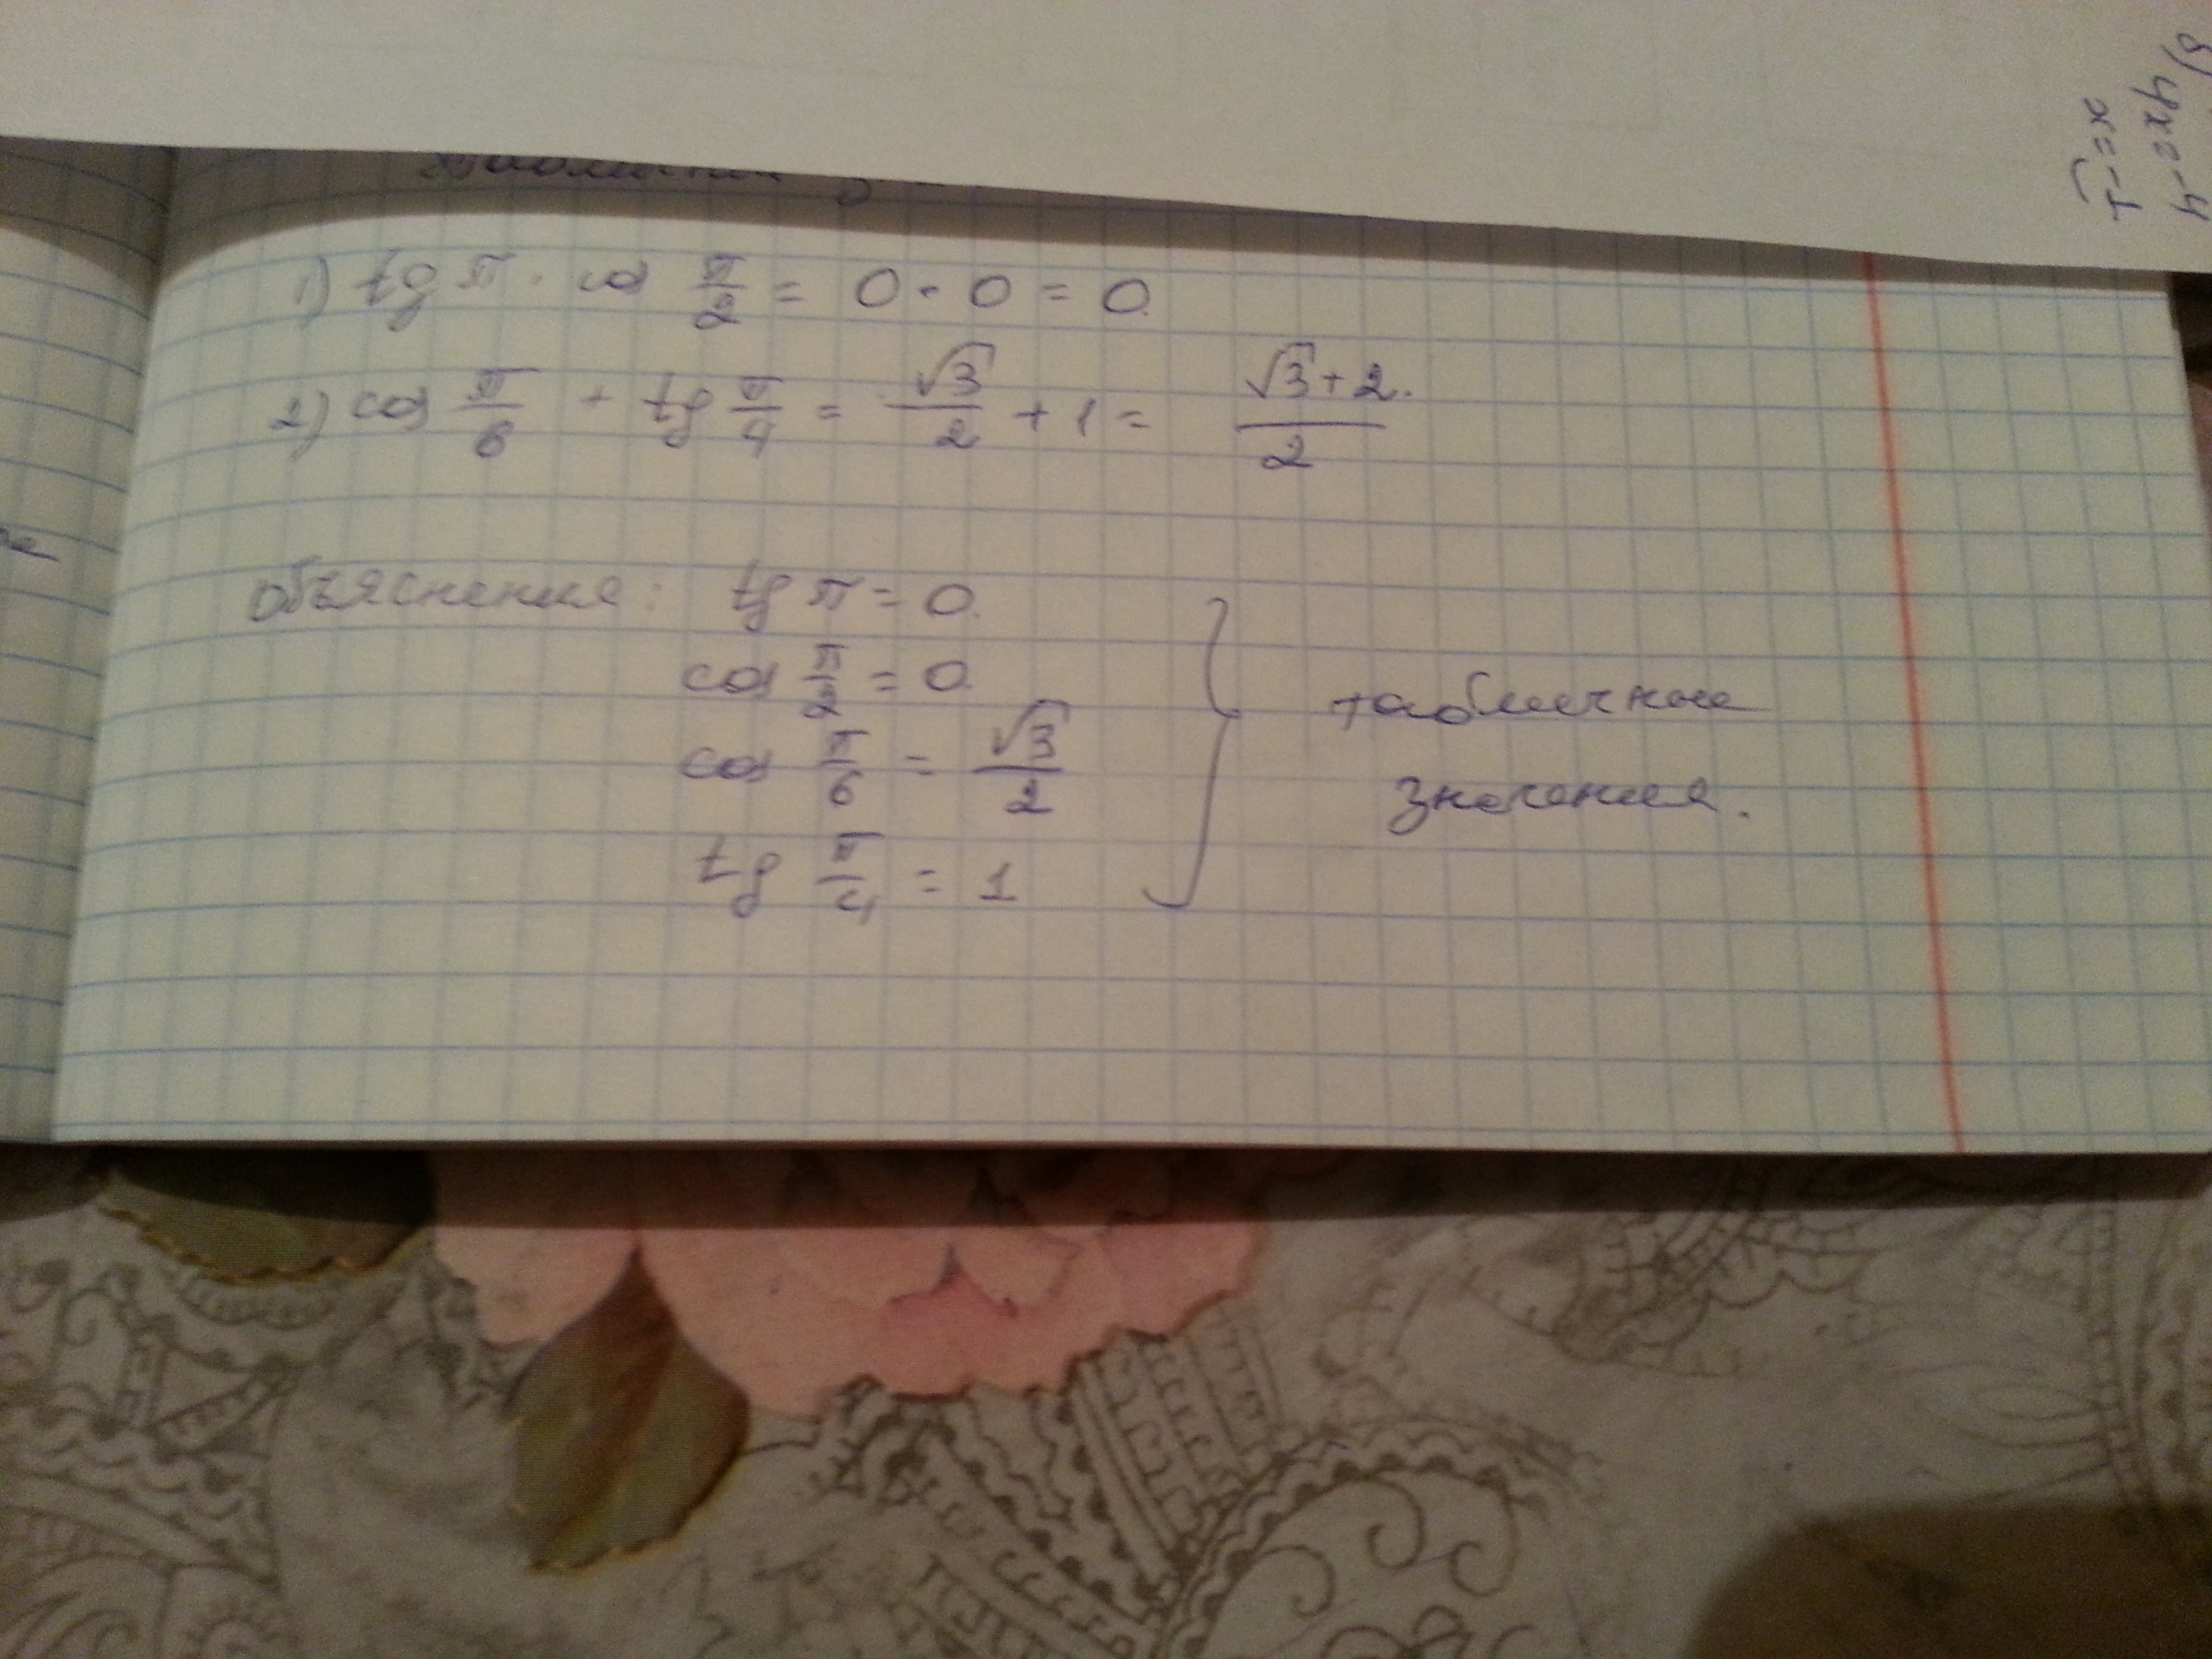 1) tg π · cos π/2 = 0 · 0 = 0.
2) cos π/6 + tg π/4 = √3/2 + 1 = √3+2/2.
объяснения: tg π = 0.
cos π/2 = 0.
cos π/6 = √3/2
tg π/4 = 1
табличные
значения.
4x=-4
x=-1